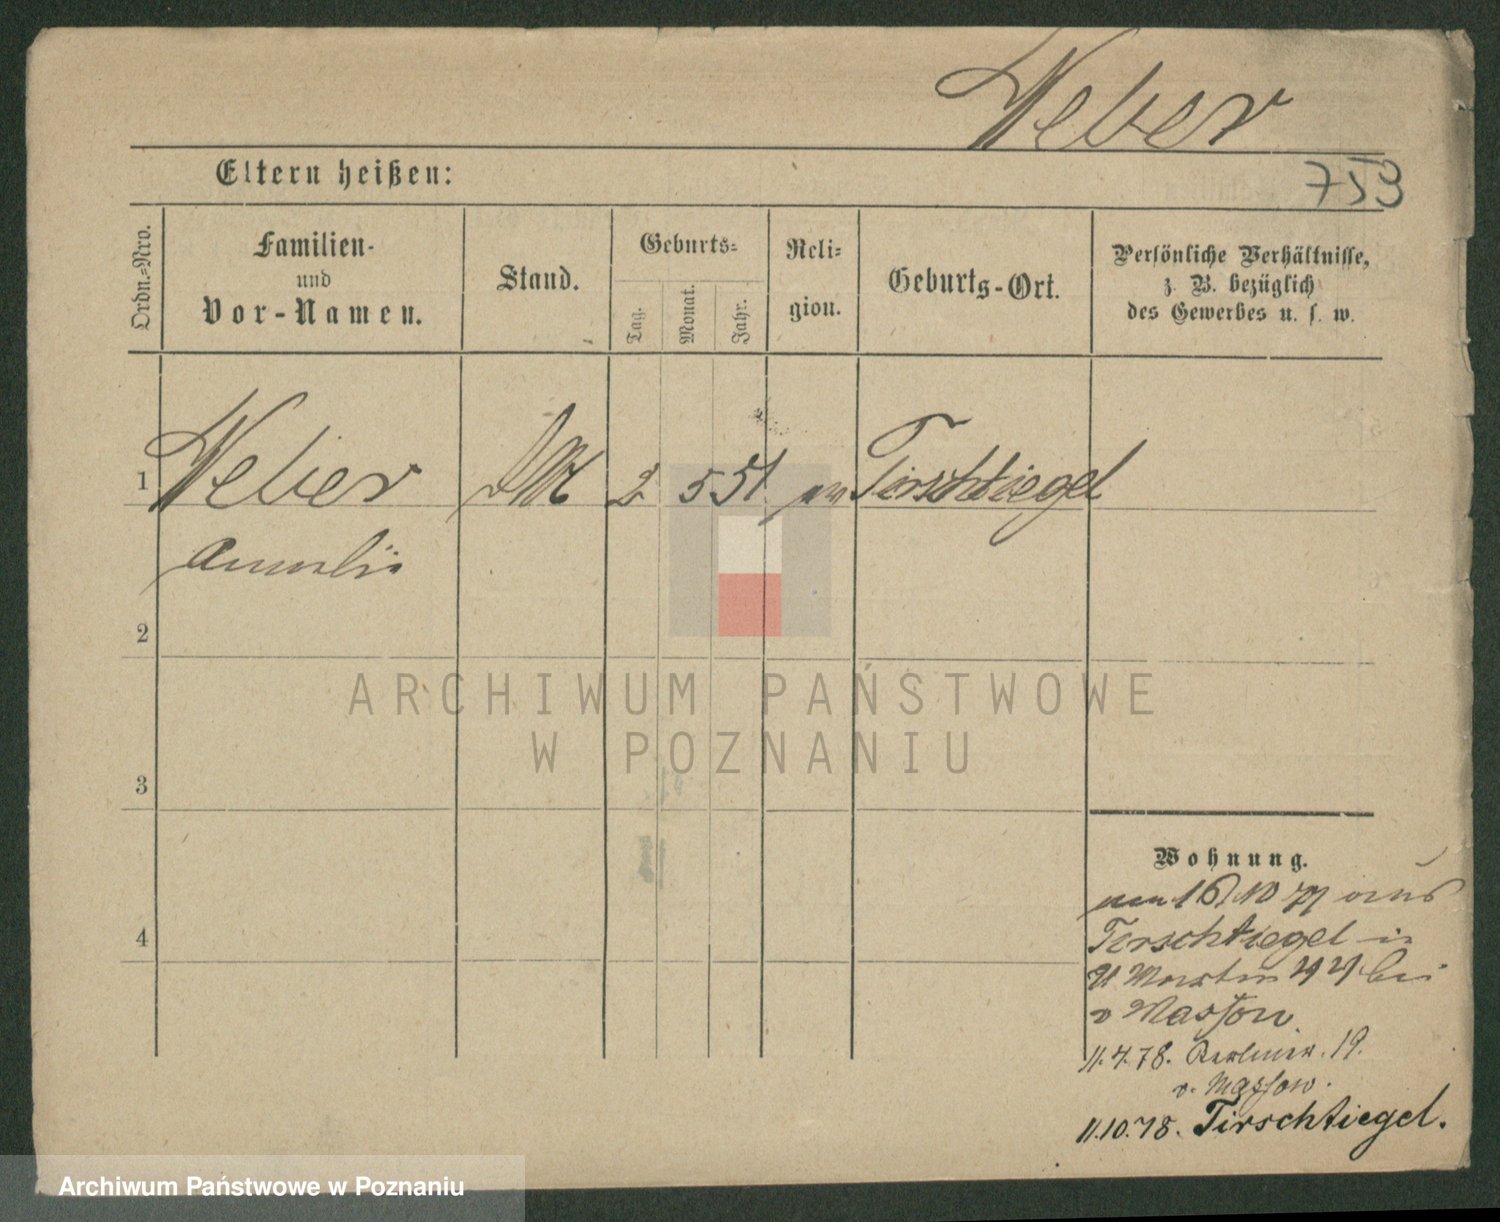 Weber
Eltern heißen:
753
Ordn.=Nro.
Familien-
und
Vor-Namen.
Stand.
Geburts=
Tag.
Monat.
Jahr.
Reli=
gion.
Geburts-Ort.
Persönliche Verhältnisse,
z. B. bezüglich
des Gewerbes u. s. w.
1
Weber
2
5
51
Tirschtiegel
2
3
4
ARCHIWUM PAŃSTWOWE
W POZNANIU
Wohnung.
16/10 77 aus
Tirschtiegel in
Martin bei
v Massow
11.4.78. Berliner. 19.
v. Massow.
11.10.78. Tirschtiegel.
Archiwum Państwowe w Poznaniu